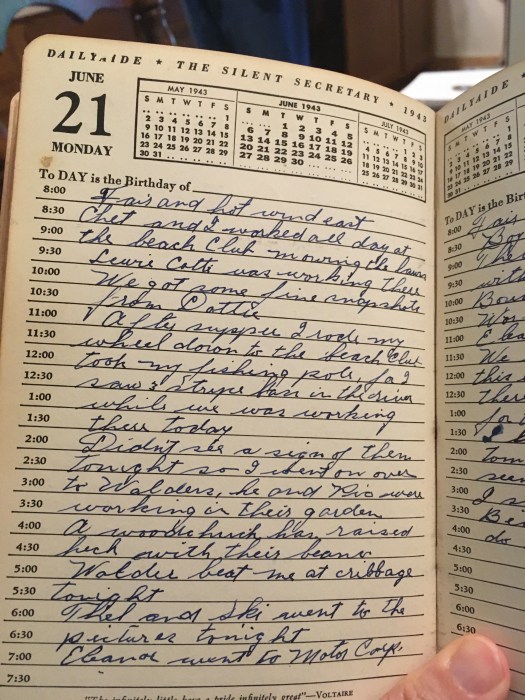 DAILYAIDE ★ THE SILENT SECRETARY ★ 1943
JUNE
21
MONDAY
MAY 1943
S M T W T F S
1
2 3 4 5 6 7 8
9 10 11 12 13 14 15
16 17 18 19 20 21 22
23 24 25 26 27 28 29
30 31
JUNE 1943
S M T W T F S
1 2 3 4 5
6 7 8 9 10 11 12
13 14 15 16 17 18 19
20 21 22 23 24 25 26
27 28 29 30
JULY 1943
S M T W T F S
1 2 3
4 5 6 7 8 9 10
11 12 13 14 15 16 17
18 19 20 21 22 23 24
25 26 27 28 29 30 31
To DAY is the Birthday of
8:00 Fair and hot wind east
8:30 Chet and I worked all day at
9:00 the beach Club mowing the lawns
9:30 Lewie Cotte was working there
10:00 We got some fine snapshots
10:30 from Dottie
11:00 After supper I rode my
11:30 wheel down to the beach Club
12:00 took my fishing pole, for I
12:30 saw 3 stripe bass in the river
1:00 while we was working
1:30 there today
2:00 Didn't see a sign of them
2:30 tonight so I went on over
3:00 to Walders, he and were
3:30 working in their garden
4:00 A woodchuck has raised
4:30 heck with their beans
5:00 Walder beat me at cribbage
5:30 tonight
6:00 Thel and Ski went to the
6:30 pictures tonight
7:00 Eleanor went to Motor Corp.
7:30
"The infinitely little have a pride infinitely great"—VOLTAIRE
DAILYAIDE
MAY 1943
To DAY is the Birt
8:00 Fair
8:30
9:00
9:30 with
10:00
10:30
11:00
11:30 We
12:00 this
12:30
1:00
1:30
2:00 tom
2:30 seen
3:00
3:30
4:00 do
4:30
5:00
5:30
6:00
6:30